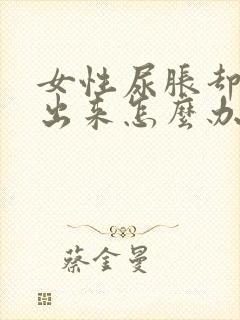 女性尿胀却
出来怎麼办
蔡金曼